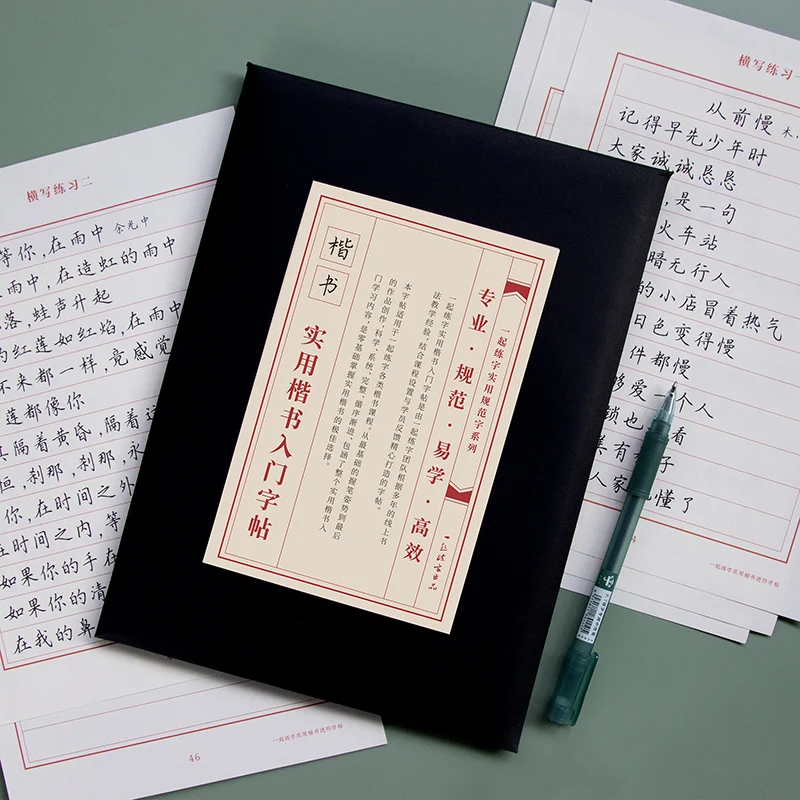 横写练习二
等你,在雨中 余光中
雨中,在造虹的雨中
落,蛙声升起
的红莲如红焰,在雨中
不来都一样,竟感觉
莲都像你
隔着黄昏,隔着
恒,刹那,刹那,永
你,在时间之外
在时间之内,等
如果你的手在
如果你的清
在我的鼻
46
一起练字实用楷书进阶字帖
楷书
实用楷书入门字帖
一起练字实用规范字系列
专业·规范·易学·高效
一起练字实用楷书入门字帖是由一起练字团队根据多年的线上书
法教学经验,结合课程设置与学员反馈精心打造的字帖。
本字帖适用于一起练字各类楷书课程。从最基础的握笔姿势到最后
的作品创作,科学、系统、完整、循序渐进、包涵了整个实用楷书入
门学习内容,是零基础掌握实用楷书的极佳选择。
一起练字出品
横写练习一
从前慢 木
记得早先少年时
大家诚诚恳恳
是一句
火车站
暗无行人
的小店冒着热气
日色变得慢
件都慢
够爱一个人
锁也 看
美有 子
人家 懂了
一起练字实用楷书进阶字帖